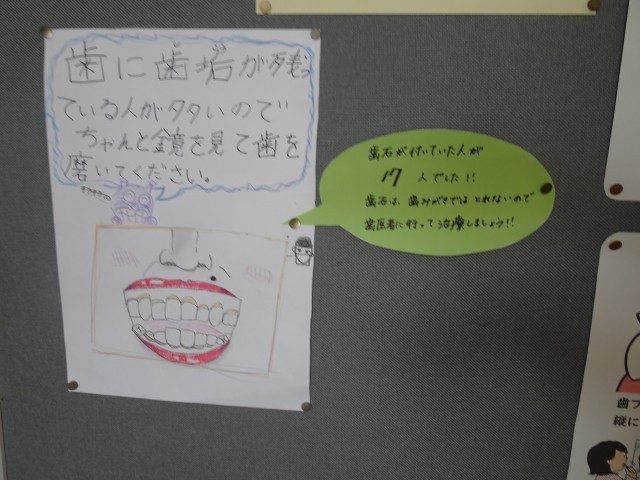 歯に歯垢が残っ
ている人が多いので
ちゃんと鏡を見て歯を
磨いてください。
歯石が付いていた人が
17 人でした!!
歯石は、歯みがきではとれないので
歯医者に行って治療しましょう!!
歯ブ
縦に